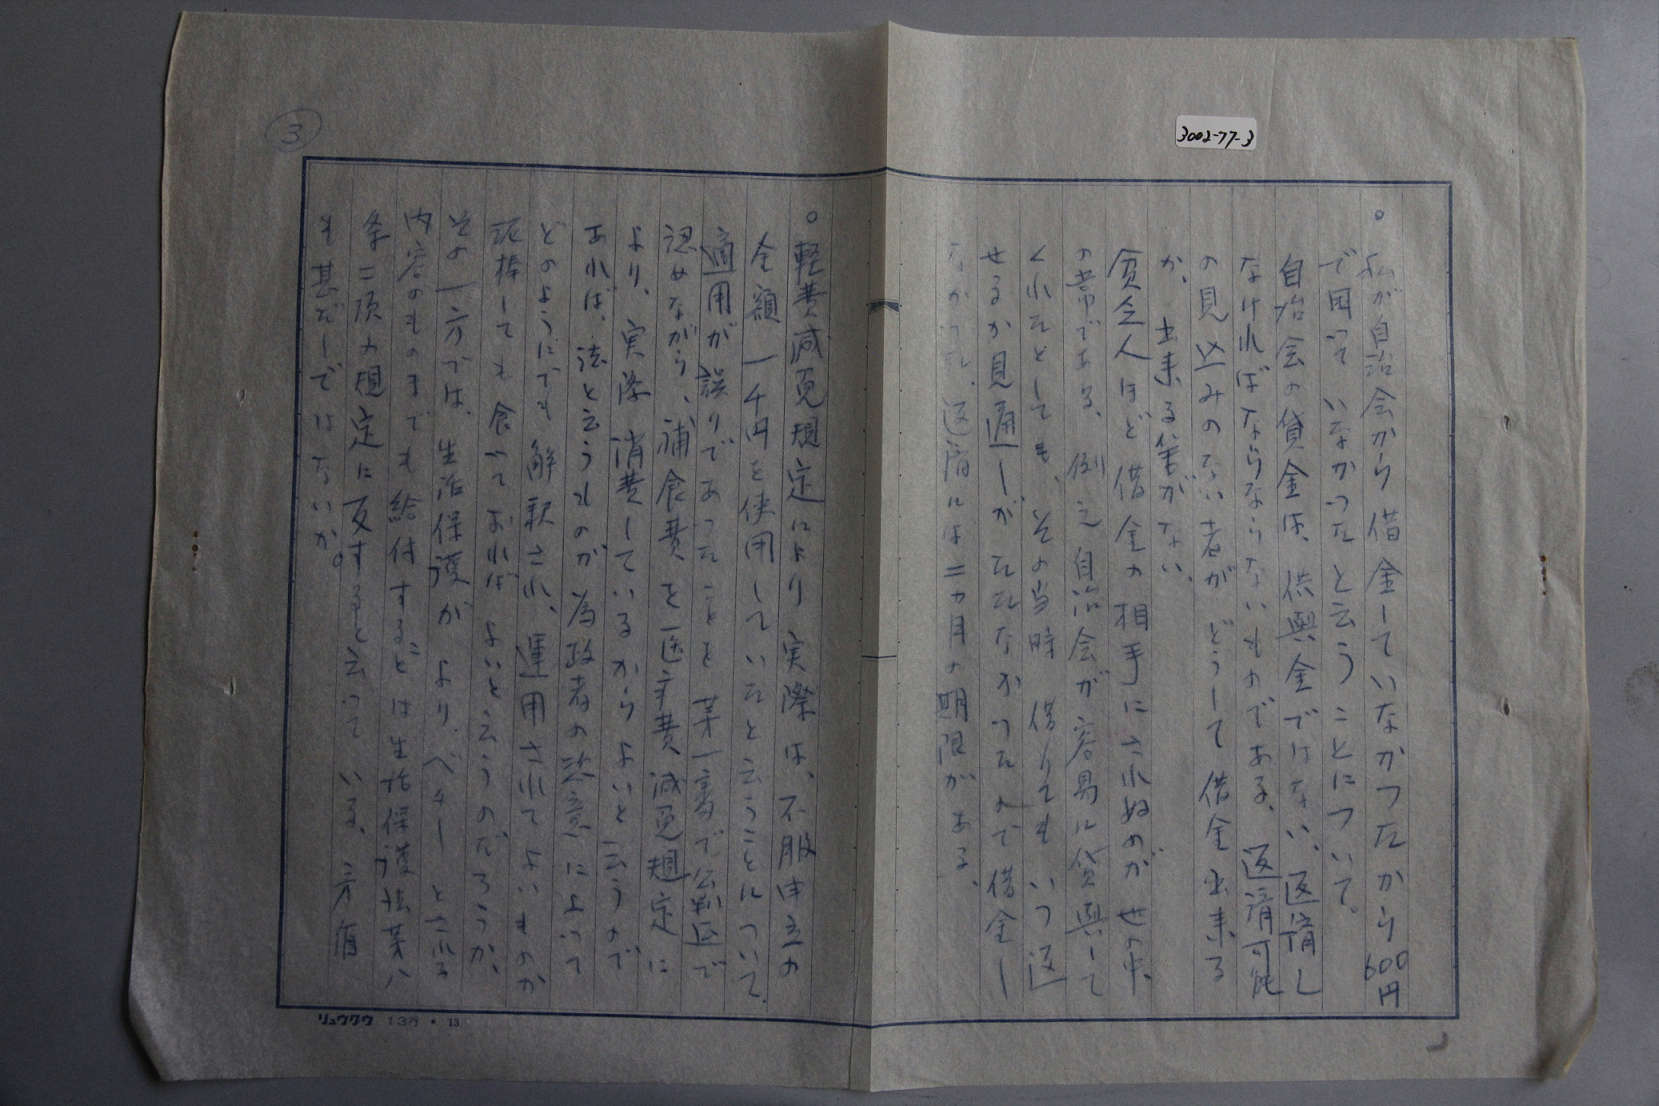 3002-77-3
○私が自治会から借金していなかつたから600円
で困つていなかつたと云うことについて。
自治会の貸金は、供与金ではない、返済し
なければならならないものである、返済可能
の見込みのない者がどうして借金出来る
か、出来る筈がない、
貧乏人ほど借金の相手にされぬのが世の中、
の常である、例え自治会が容易に貸與して
くれたとしても、その当時借りてもいつ返
せるか見通しがたたなかつたので借金し
なかつた、返済には二カ月の期限がある、
○軽費減免規定により実際は、不服申立の
全額一千円を使用していたと云うことについて、
適用が誤りであつたことを第一審で公判廷で
認めながら、補食費を医療費減免規定に
より、実際消費しているからよいと云うので
あれば、法と云うものが為政者の恣意によつて
どのようにでも解釈され、運用されてよいものか
泥棒しても食つておればよいと云うのだろうか、
その一方では、生活保護がより、ベターとされる
内容のものまでも給付することは生活保護法第八
条二項の規定に反すると云つている、矛盾
も甚だしではないか。
③
リュウクウ 13行 • 13